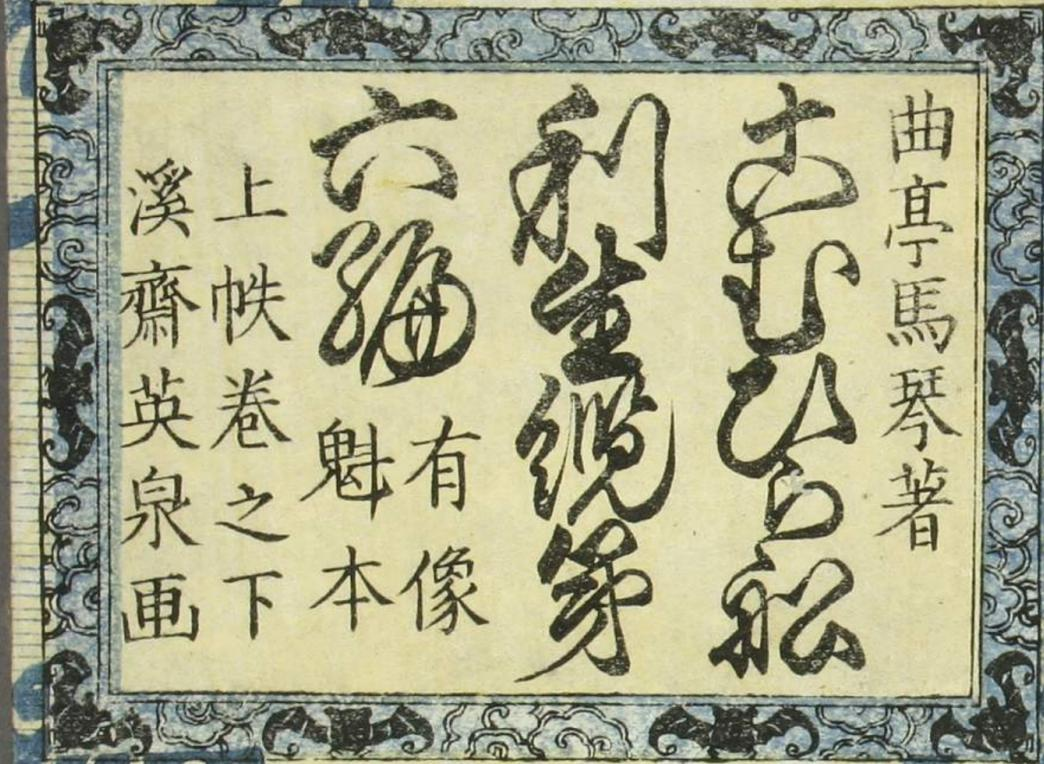 曲亭馬琴著
こむひら舩
利生纜第
六編
有像
魁本
上帙巻之下
溪齋英泉画